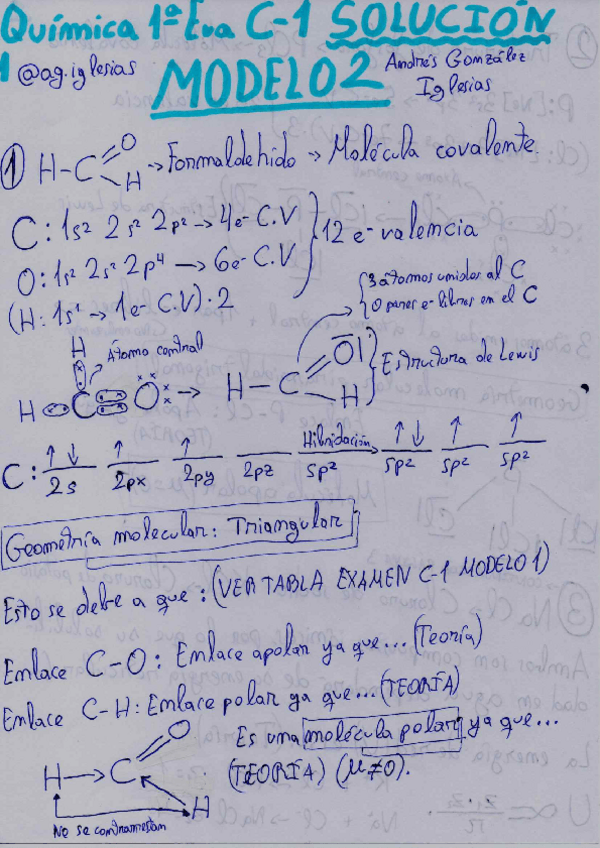 Química 1ª Eva C-1 SOLUCIÓN
@ag.iglesias MODELO 2 Andrés González Iglesias
① H-C O H → Formaldehido → Molécula covalente.
C: 1s² 2s² 2p² → 4e- C.V
O: 1s² 2s² 2p⁴ → 6e- C.V
(H: 1s¹ → 1e- C.V)·2
12 e- valencia
3 átomos unidos al C
0 pares e- libres en el C
H Átomo central
H C O → H-C O H Estructura de Lewis
C: ↑↓ ↑ ↑ Hibridación ↑↓ ↑ ↑
2s 2px 2py 2pz sp² sp² sp² sp²
Geometría molecular: Triangular
Esto se debe a que: (VER TABLA EXAMEN C-1 MODELO 1)
Enlace C-O: Enlace apolar ya que... (Teoría)
Enlace C-H: Enlace polar ya que... (TEORÍA)
H → C O H
Es una molécula polar ya que...
(TEORÍA) (μ≠0).
No se contrarrestan